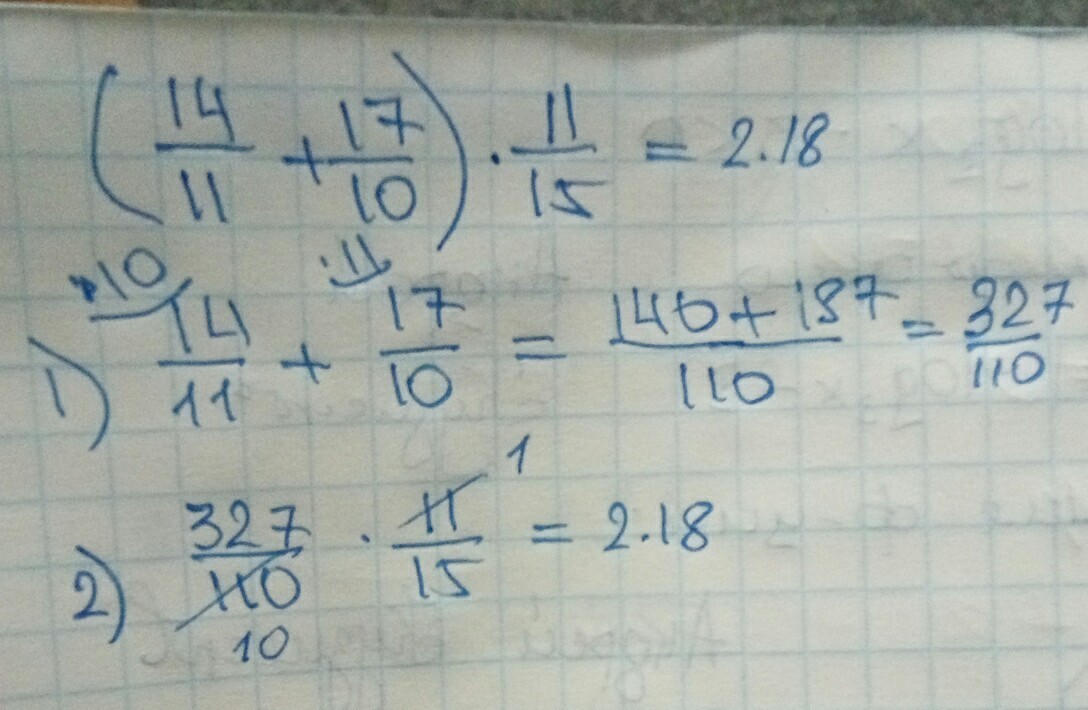 (14/11 + 17/10) · 11/15 = 2.18
·10 ·11
1) 14/11 + 17/10 = 140+187/110 = 327/110
1
2) 327/110 · 11/15 = 2.18
10